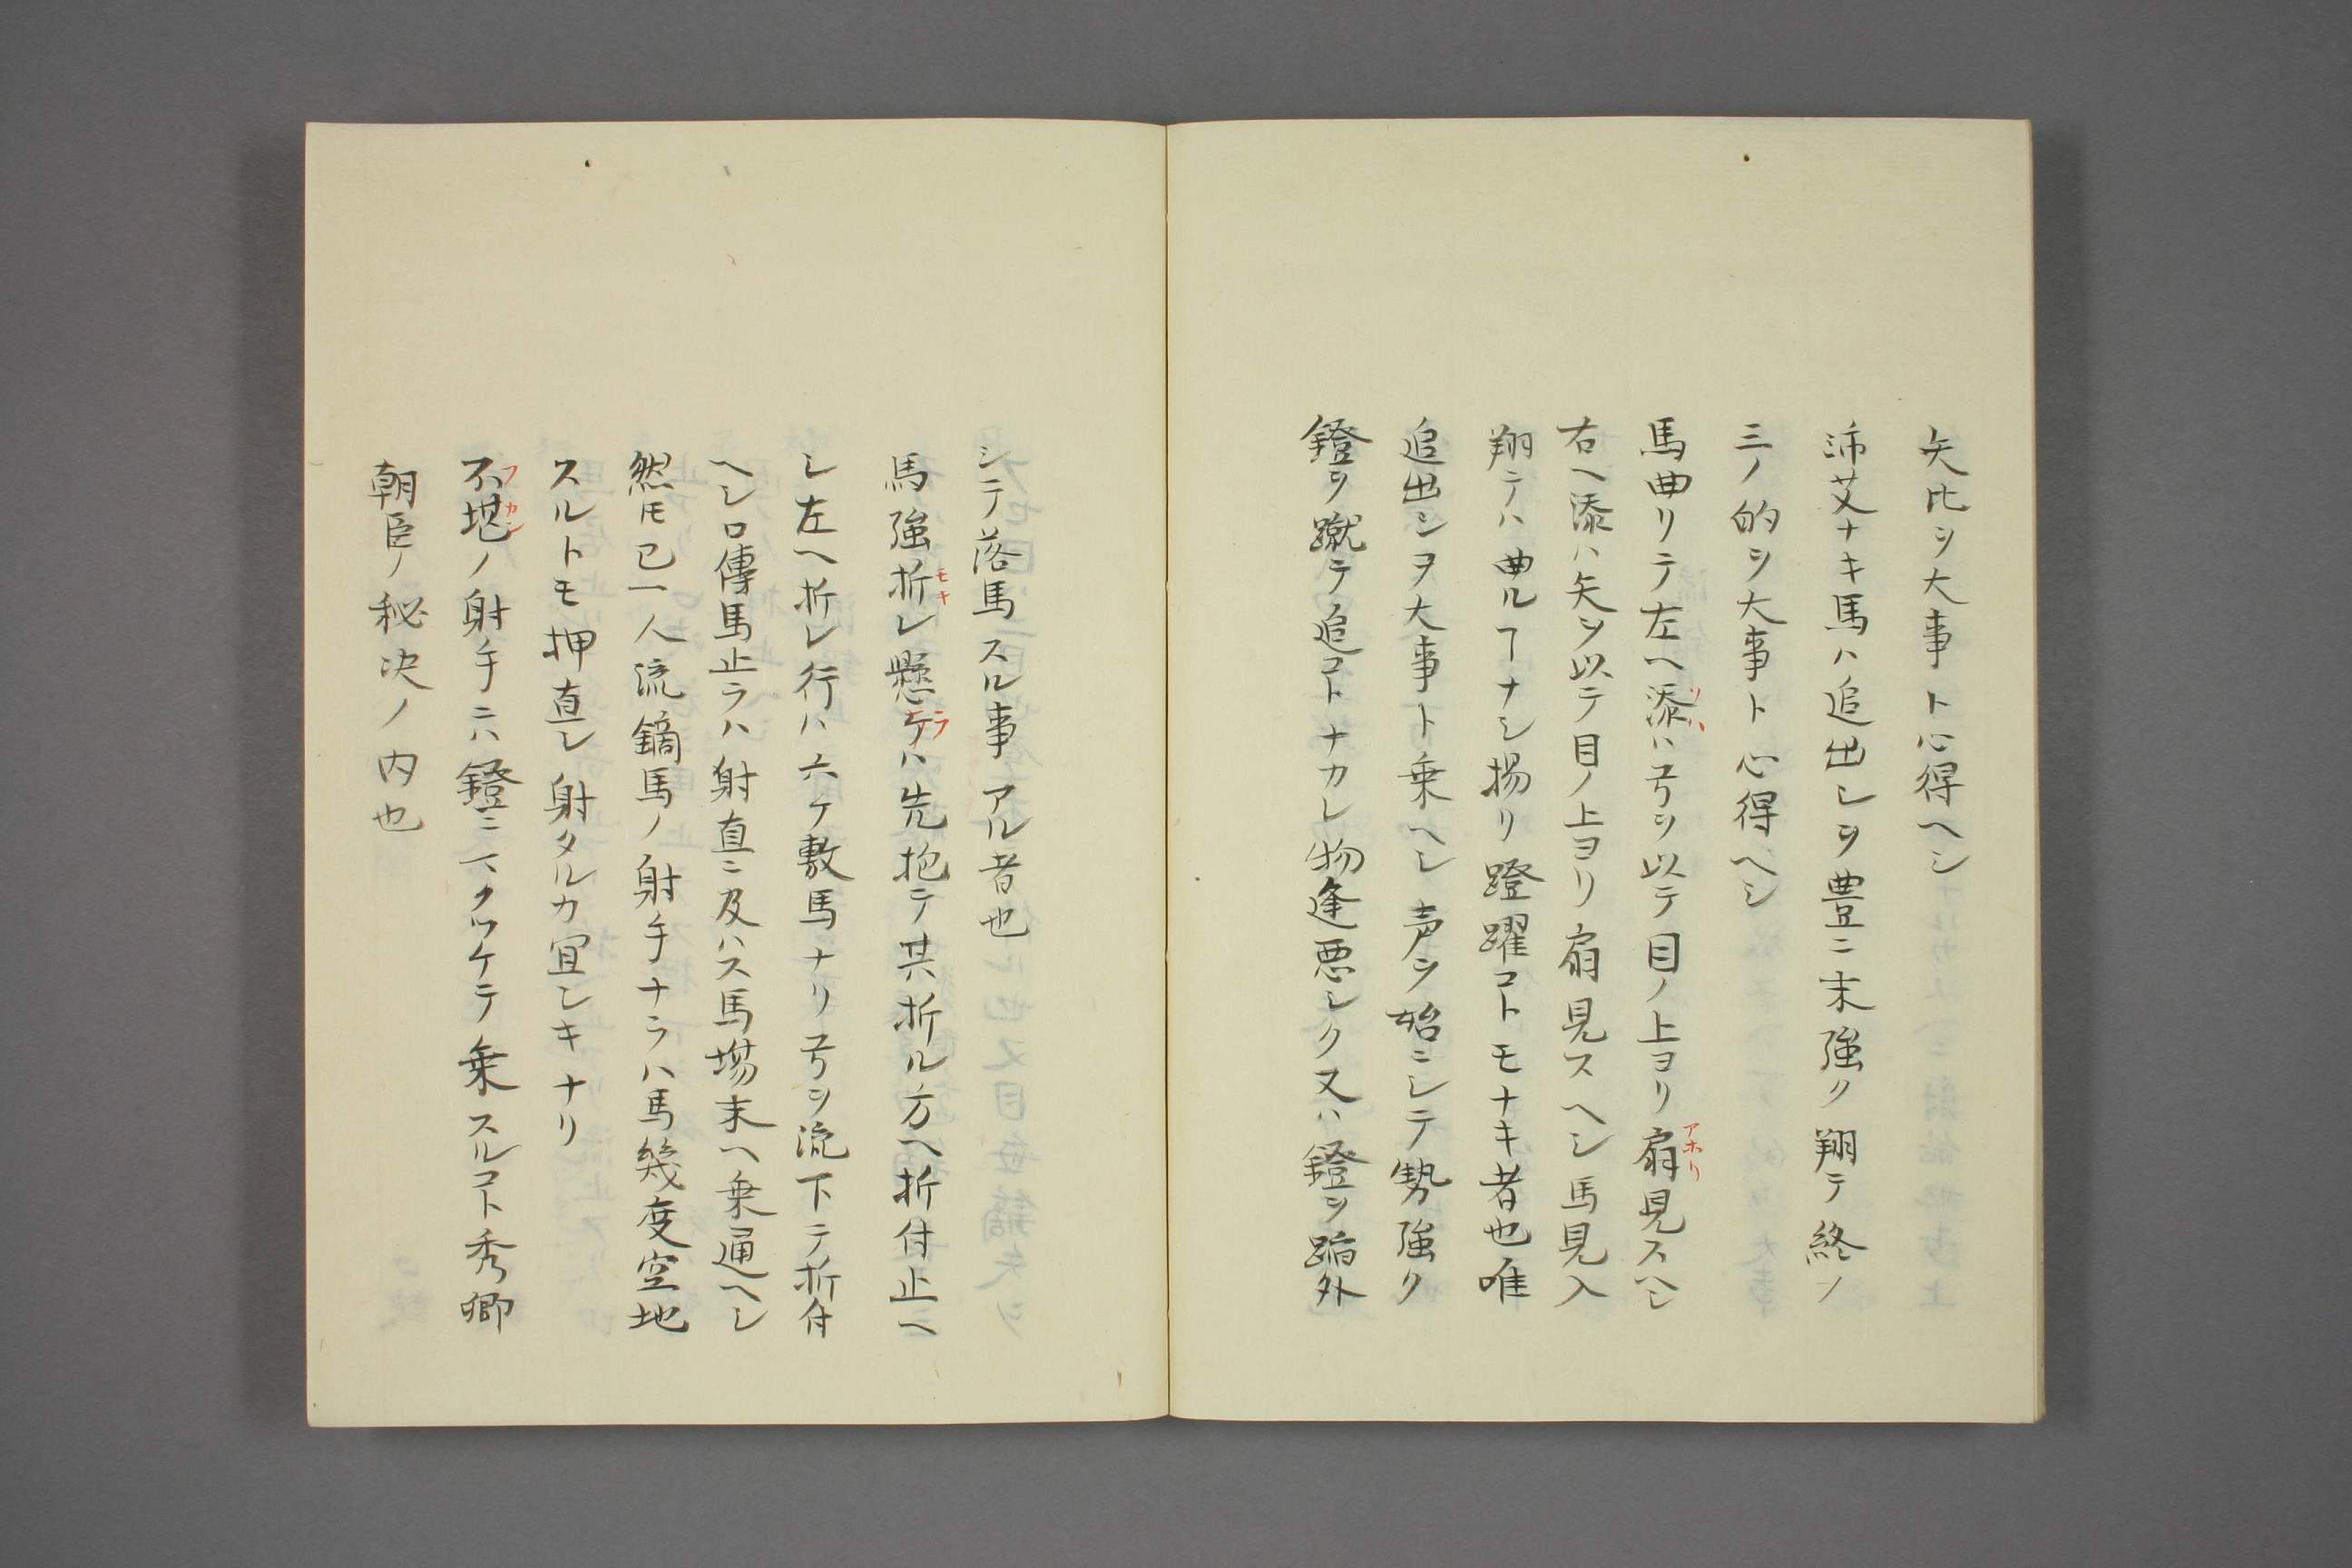 矢比ヲ大事ト心得ヘシ
沛艾ナキ馬ハ追出シヲ豊ニ末強ク翔テ終ノ
三ノ的ヲ大事ト心得ヘシ
馬曲リテ左ヘ添ハ弓ヲ以テ目ノ上ヨリ扇見スヘシ
右ヘ添ハ矢ヲ以テ目ノ上ヨリ扇見スヘシ馬見入
翔テハ曲ルヿナシ揚リ蹬躍コトモナキ者也唯
追出シヲ大事ト乗ヘシ声ヲ始ニシテ勢強ク
鐙ヲ蹴テ追コトナカレ物逢悪シク又ハ鐙ヲ踏外
シテ落馬スル事アル者也
馬強折レ懸ケハ先抱テ其折ル方ヘ折付止ヘ
シ左ヘ折レ行ハ六ケ敷馬ナリ弓ヲ流下テ折付
ヘシ口傳馬止ラハ射直ニ及ハス馬場末ヘ乗通ヘシ
然ㇳモ已一人流鏑馬ノ射手ナラハ馬幾度空地
スルトモ押直シ射タルカ冝シキナリ
不堪ノ射手ニハ鐙ニ一クツケテ乗スルコト秀卿
朝臣ノ秘决ノ内也